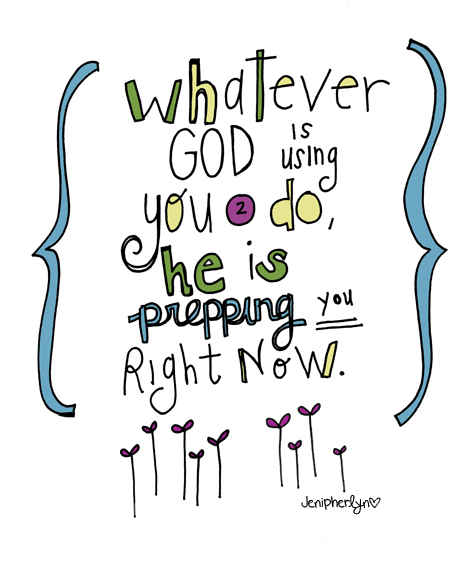 whatever
GOD is using
you 2 do,
he is
prepping you
Right Now.
Jenipherlyn